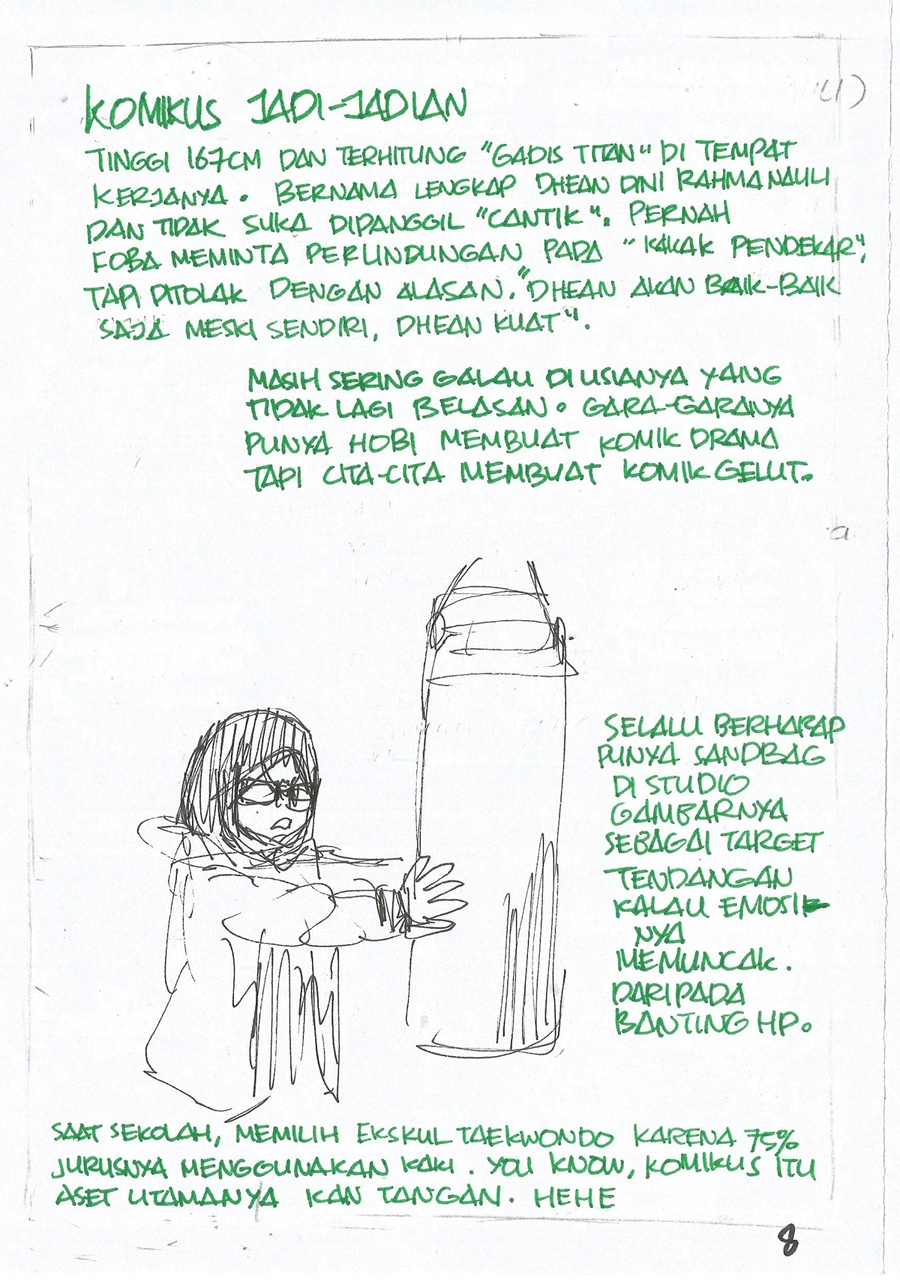 (1)
KOMIKUS JADI-JADIAN
TINGGI 167CM DAN TERHITUNG "GADIS TITAN" DI TEMPAT
KERJANYA. BERNAMA LENGKAP DHEAN DINI RAHMANAULI
DAN TIDAK SUKA DIPANGGIL "CANTIK". PERNAH
COBA MEMINTA PERLINDUNGAN PADA "KAKAK PENDEKAR",
TAPI DITOLAK DENGAN ALASAN. "DHEAN AKAN BAIK-BAIK
SAJA MESKI SENDIRI, DHEAN KUAT".
MASIH SERING GALAU DI USIANYA YANG
TIDAK LAGI BELASAN. GARA-GARANYA
PUNYA HOBI MEMBUAT KOMIK DRAMA
TAPI CITA-CITA MEMBUAT KOMIK GELUT.
a
SELALU BERHARAP
PUNYA SANDBAG
DI STUDIO
GAMBARNYA
SEBAGAI TARGET
TENDANGAN
KALAU EMOSI
NYA
MEMUNCAK.
DARIPADA
BANTING HP.
SAAT SEKOLAH, MEMILIH EKSKUL TAEKWONDO KARENA 75%
JURUSNYA MENGGUNAKAN KAKI. YOU KNOW, KOMIKUS ITU
ASET UTAMANYA KAN TANGAN. HEHE
8